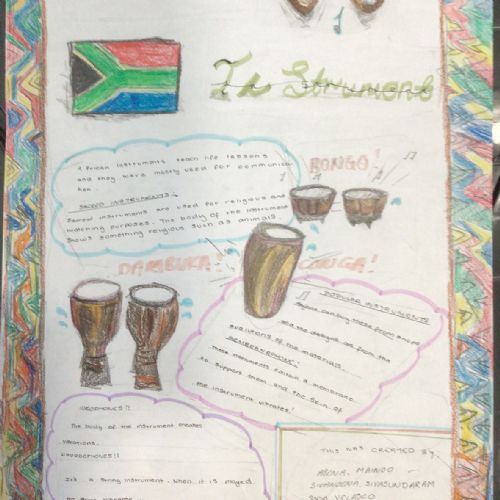 Instrument
African instruments teach life lessons
and they were mostly used for communica
BONGO!
SACRED INSTRUMENTS:
Sacred instruments are used for religious and
purposes. The body of the instrument
shows something religious such as animals.
DAMBUKA!
CONGA!
POPULAR INSTRUMENTS
and the designs are from the
evolutions of the materials.
MEMBRANOPHONE:
These instruments contain a membrane
to support them and the skin of
the instrument vibrates!
IDEOPHONES!!
The body of the instrument creates
vibrations.
CHORDOPHONES!!
It's a string instrument. When it is played
the string vibrates
THIS WAS CREATED BY:
SIVASUNDARAM
VELASCO